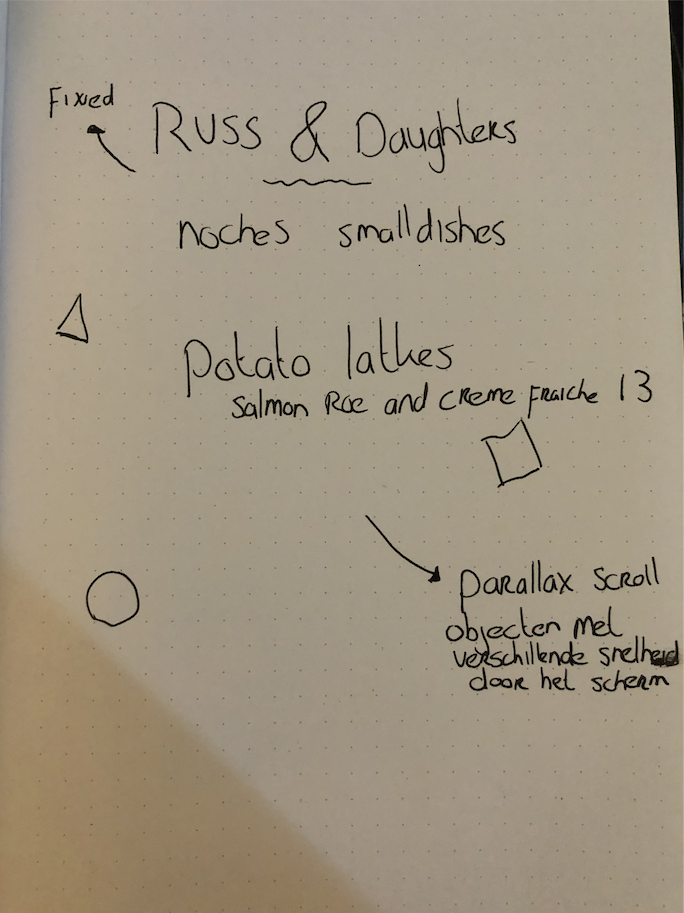 Fixed
Russ & Daughters
noches smalldishes
Potato latkes
Salmon Roe and creme fraiche 13
parallax scroll
objecten met
verschillende snelheid
door het scherm